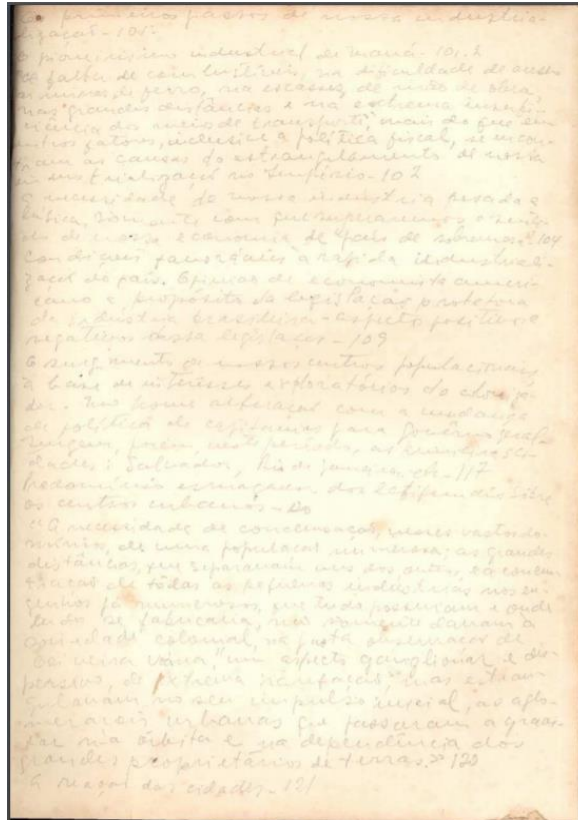 Os primeiros passos de nossa industria-
lização - 101
O pioneirismo industrial de Mauá - 101.2
"Na falta de combustíveis, na dificuldade de acesso
às minas de ferro, na escassez de mão de obra,
nas grandes distâncias e na extrema insufi-
ciência dos meios de transporte, mais do que em
outros fatores, inclusive a política fiscal, se encon-
tram as causas do estrangulamento de nossa
industrialização no Império - 102
A necessidade de nossa indústria pesada e
básica. Somente com que superaremos o
de nossa economia de "país de sobremesa". 104
Condições favoráveis à rápida industriali-
zação do país. Opinião de economista ameri-
cano a propósito da legislação protetora
da indústria brasileira - aspecto positivo e
negativo dessa legislação - 109
O surgimento de nossos centros populacionais
à base de interêsses exploratórios do
Não houve alteração com a mudança
da política de capitanias para govêrno geral
Surgem, porém, neste período, as primeiras ci-
dades: Salvador, Rio de Janeiro, etc - 117
Predomínio esmagador dos latifúndios sôbre
os centros urbanos - 120
"A necessidade de concentração, nesses vastos do-
mínios, de uma população numerosa; as grandes
distâncias, que separavam uns dos outros, e a concen-
tração de tôdas as pequenas indústrias nos en-
genhos já numerosos, que tudo possuíam e onde
tudo se fabricava, não somente davam à
sociedade colonial, na justa observação de
Oliveira Viana, "um aspecto ganglionar e dis-
persivo, de extrema rarefação", mas estran-
gulavam no seu impulso inicial, as aglo-
merações urbanas que passaram a gravi-
tar na órbita e na dependência dos
grandes proprietários de terras." 120
A reação das cidades - 121